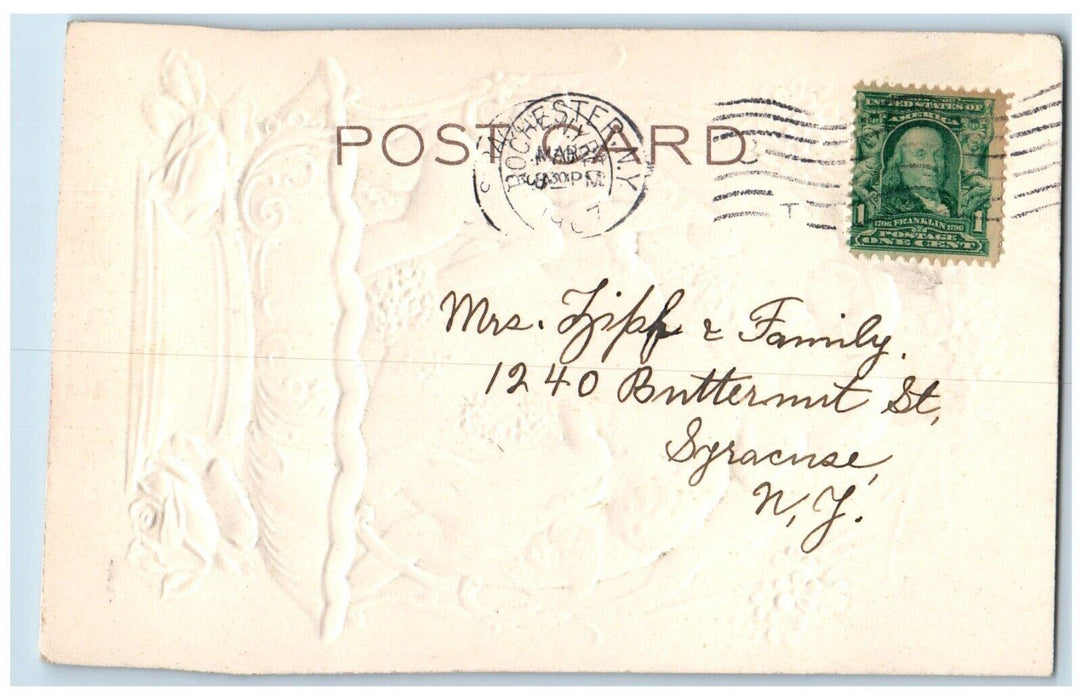 POST CARD
ROCHESTER, N.Y.
MAR
8:30 PM
1907
UNITED STATES OF
AMERICA
1 1
1706 FRANKLIN 1790
POSTAGE
ONE CENT
Mrs. Zipf & Family.
1240 Butternut St,
Syracuse,
N.Y.